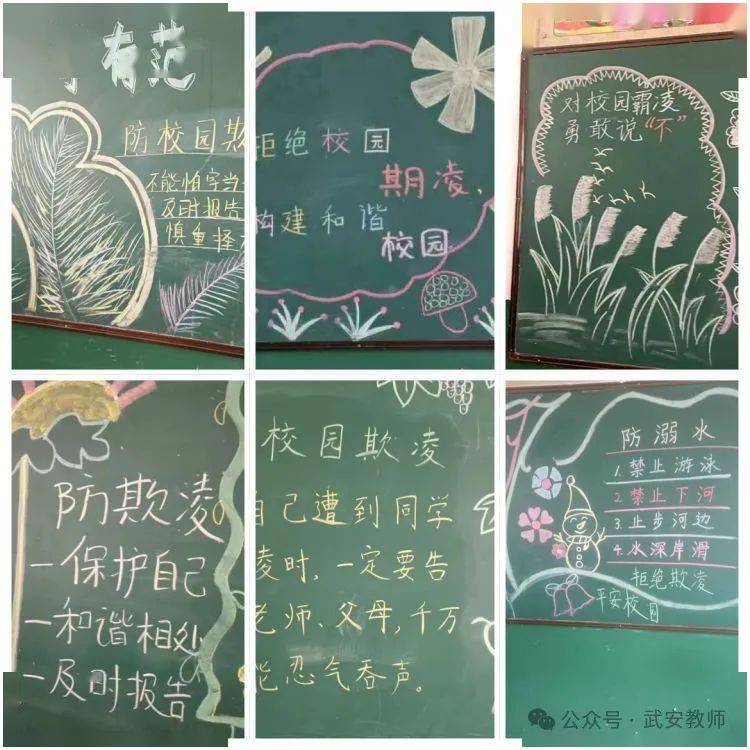 有范
防校园欺
不能怕字当
及时报告
慎重择
拒绝校园
期凌,
构建和谐
校园
对校园霸凌
勇敢说“不”
防欺凌
一保护自己
一和谐相处
一及时报告
校园欺凌
自己遭到同学
凌时,一定要告
老师、父母,千万
能忍气吞声。
防溺水
1.禁止游泳
2.禁止下河
3.止步河边
4.水深岸滑
拒绝欺凌
平安校园
公众号·武安教师